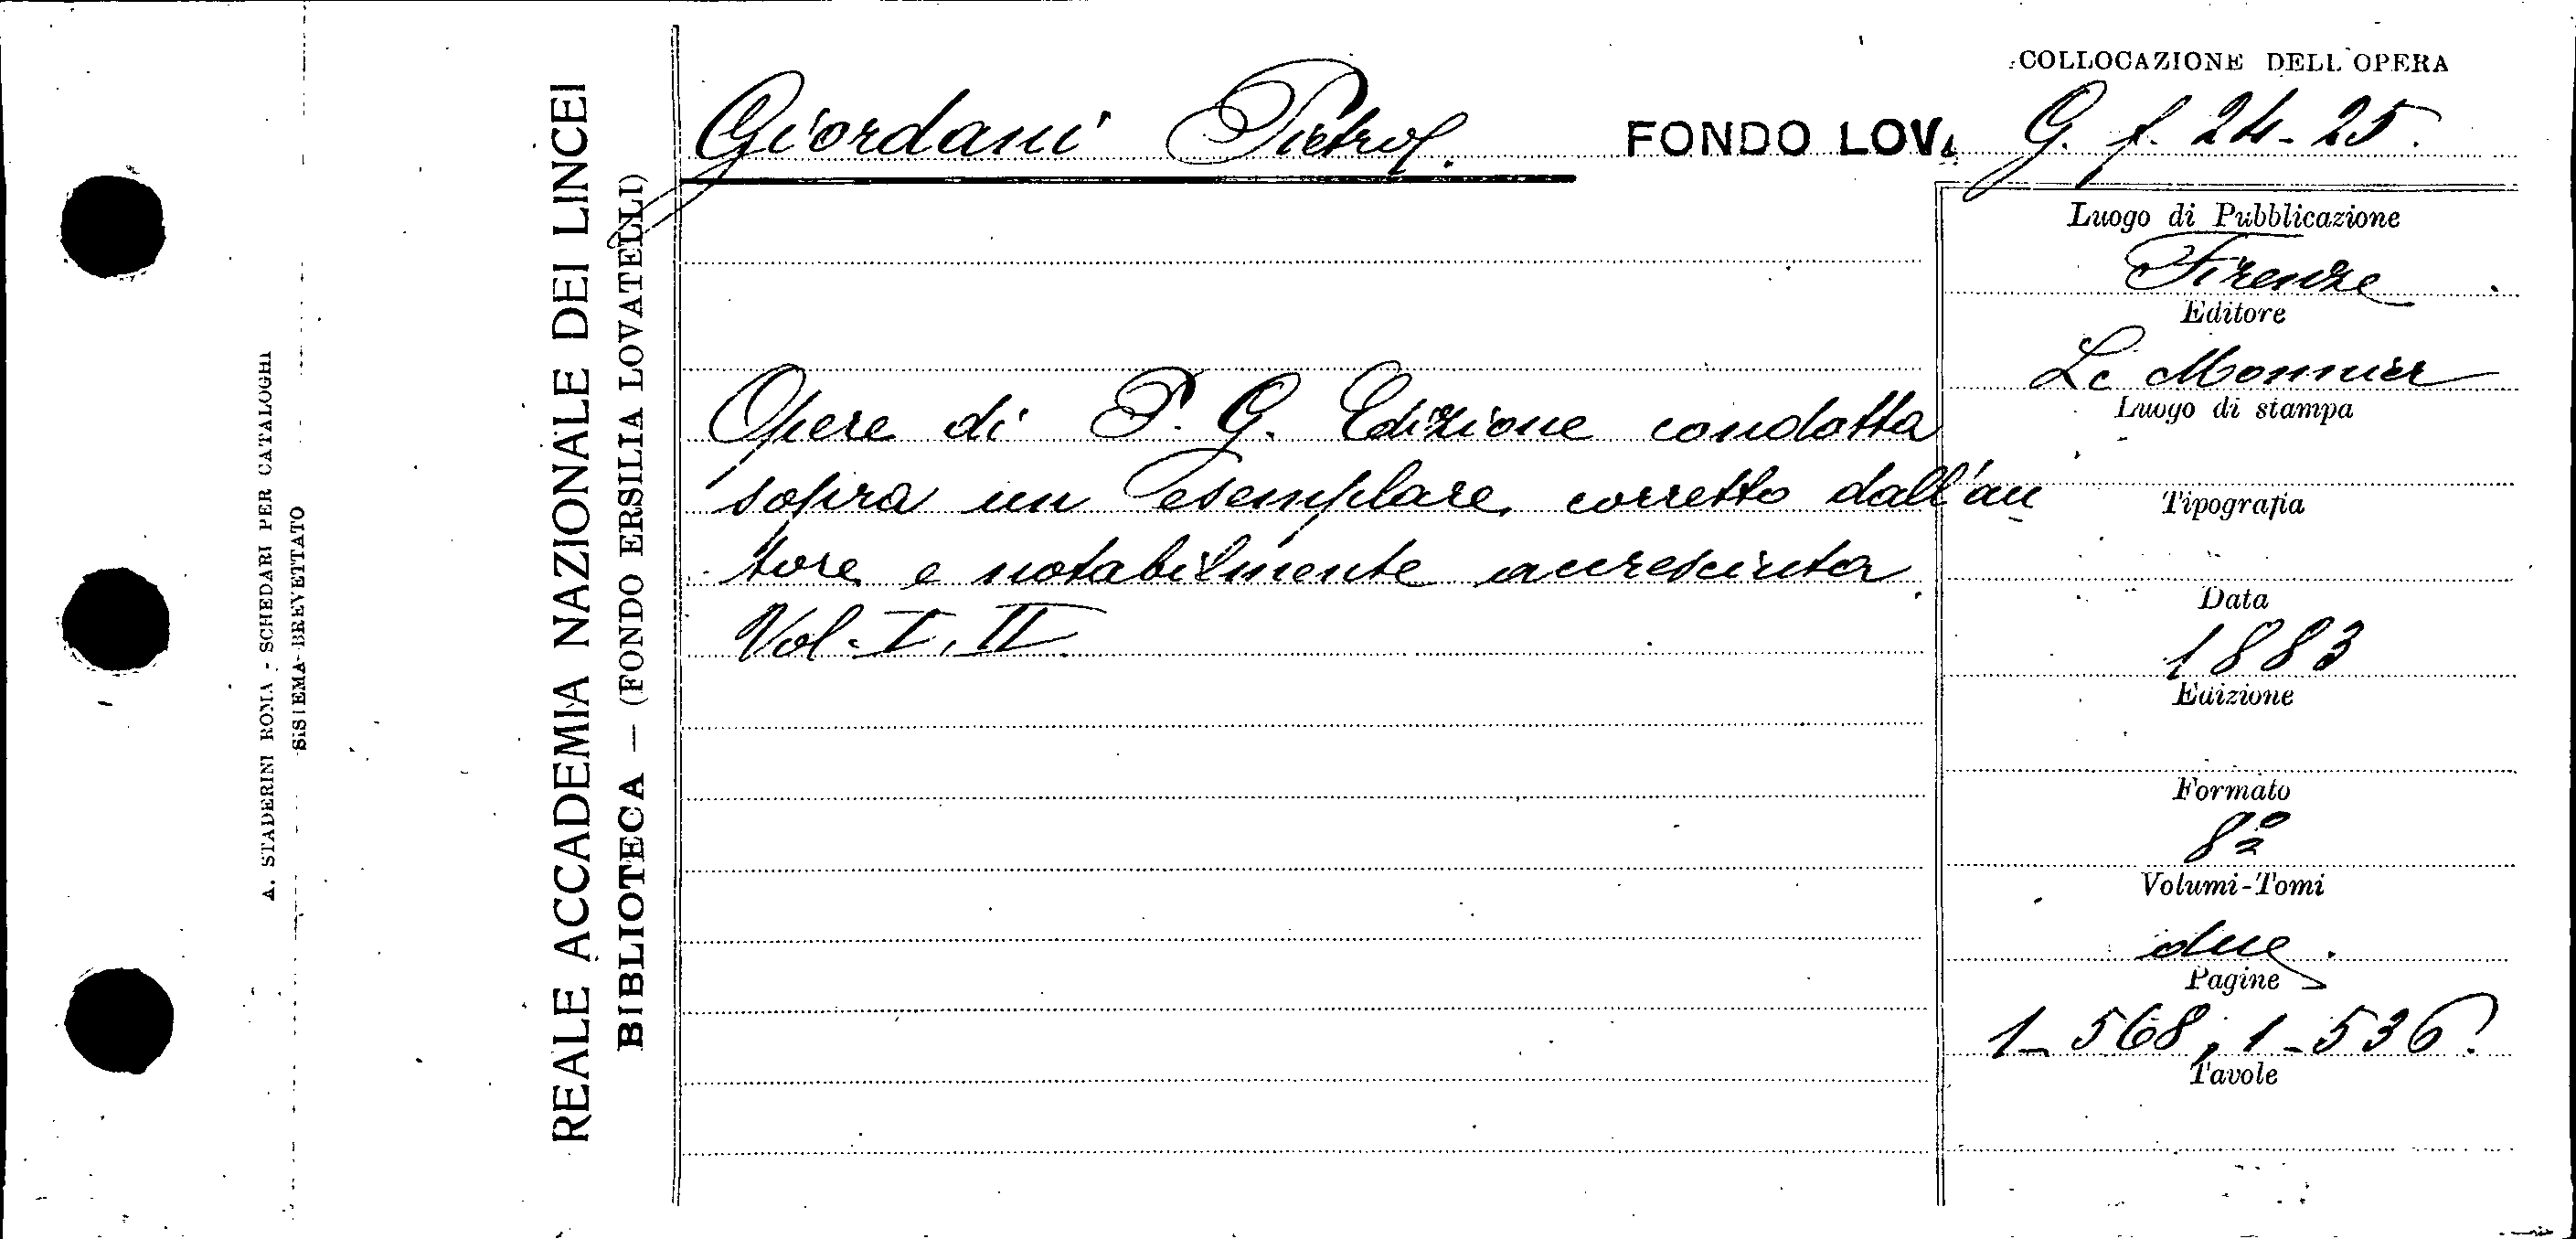 A. STADERINI ROMA - SCHEDARI PER CATALOGHI
SISTEMA BREVETTATO
REALE ACCADEMIA NAZIONALE DEI LINCEI
BIBLIOTECA — (FONDO ERSILIA LOVATELLI)
Giordani Pietro.
FONDO LOV.
COLLOCAZIONE DELL'OPERA
G. f. 24-25.
Opere di P. G. Edizione condotta
sopra un esemplare corretto dall'au
tore e notabilmente accresciuta.
Vol. I. II.
Luogo di Pubblicazione
Firenze
Editore
Le Monnier
Luogo di stampa
Tipografia
Data
1883
Edizione
Formato
8º
Volumi-Tomi
due.
Pagine
1-568, 1-536.
Tavole